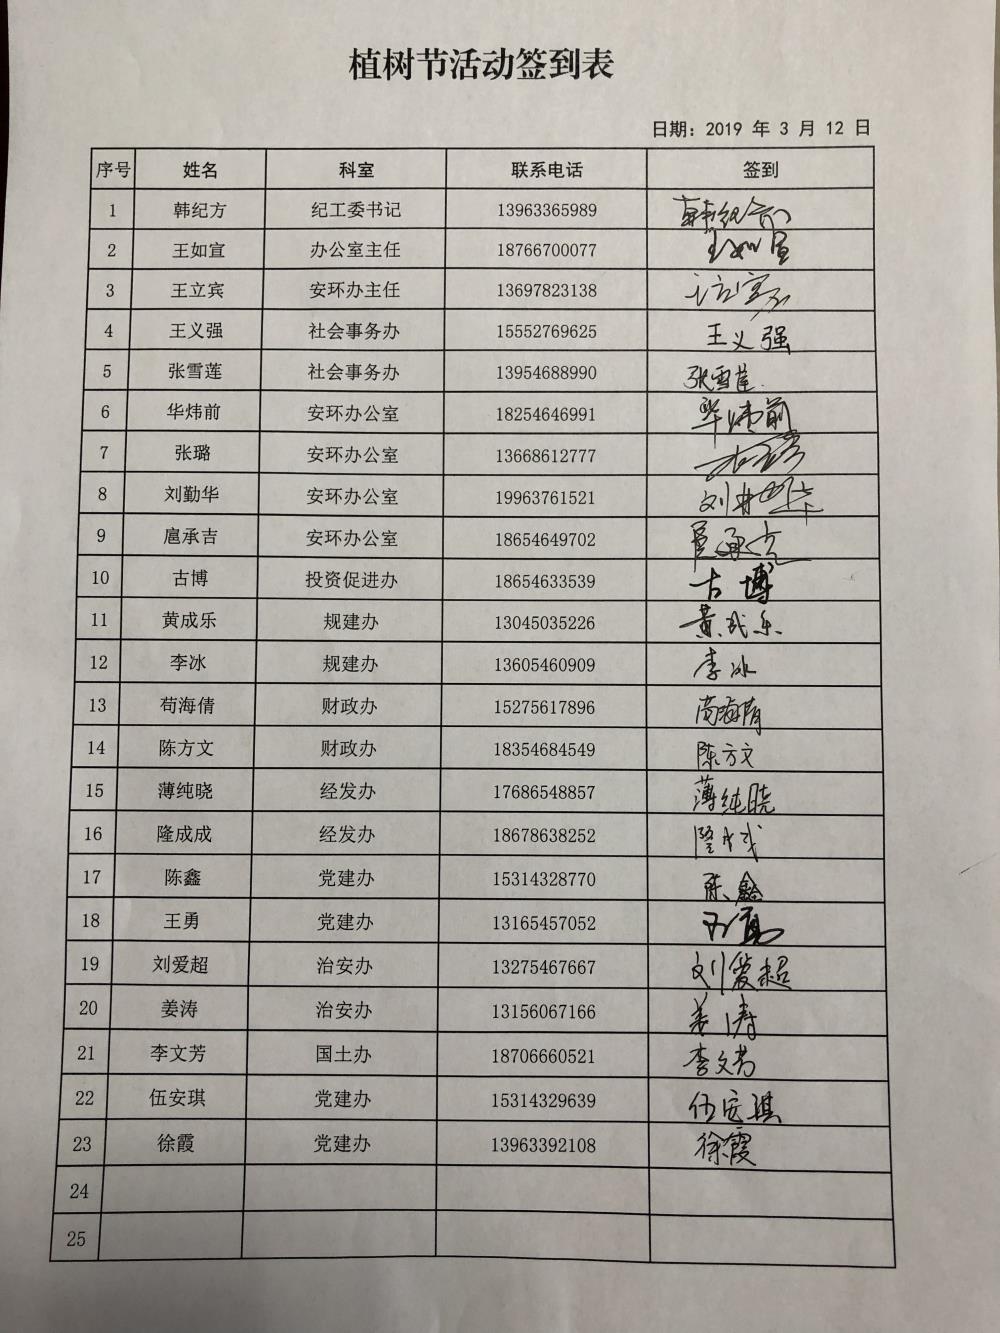 植树节活动签到表
日期：2019 年 3 月 12 日
序号 姓名 科室 联系电话 签到
1 韩纪方 纪工委书记 13963365989 韩纪方
2 王如宣 办公室主任 18766700077 王如宣
3 王立宾 安环办主任 13697823138
4 王义强 社会事务办 15552769625 王义强
5 张雪莲 社会事务办 13954688990 张雪莲
6 华炜前 安环办公室 18254646991 华炜前
7 张璐 安环办公室 13668612777
8 刘勤华 安环办公室 19963761521 刘勤华
9 扈承吉 安环办公室 18654649702 扈承吉
10 古博 投资促进办 18654633539 古博
11 黄成乐 规建办 13045035226 黄成乐
12 李冰 规建办 13605460909 李冰
13 苟海倩 财政办 15275617896 苟海倩
14 陈方文 财政办 18354684549 陈方文
15 薄纯晓 经发办 17686548857 薄纯晓
16 隆成成 经发办 18678638252
17 陈鑫 党建办 15314328770 陈鑫
18 王勇 党建办 13165457052 王勇
19 刘爱超 治安办 13275467667 刘爱超
20 姜涛 治安办 13156067166 姜涛
21 李文芳 国土办 18706660521 李文芳
22 伍安琪 党建办 15314329639 伍安琪
23 徐霞 党建办 13963392108 徐霞
24
25